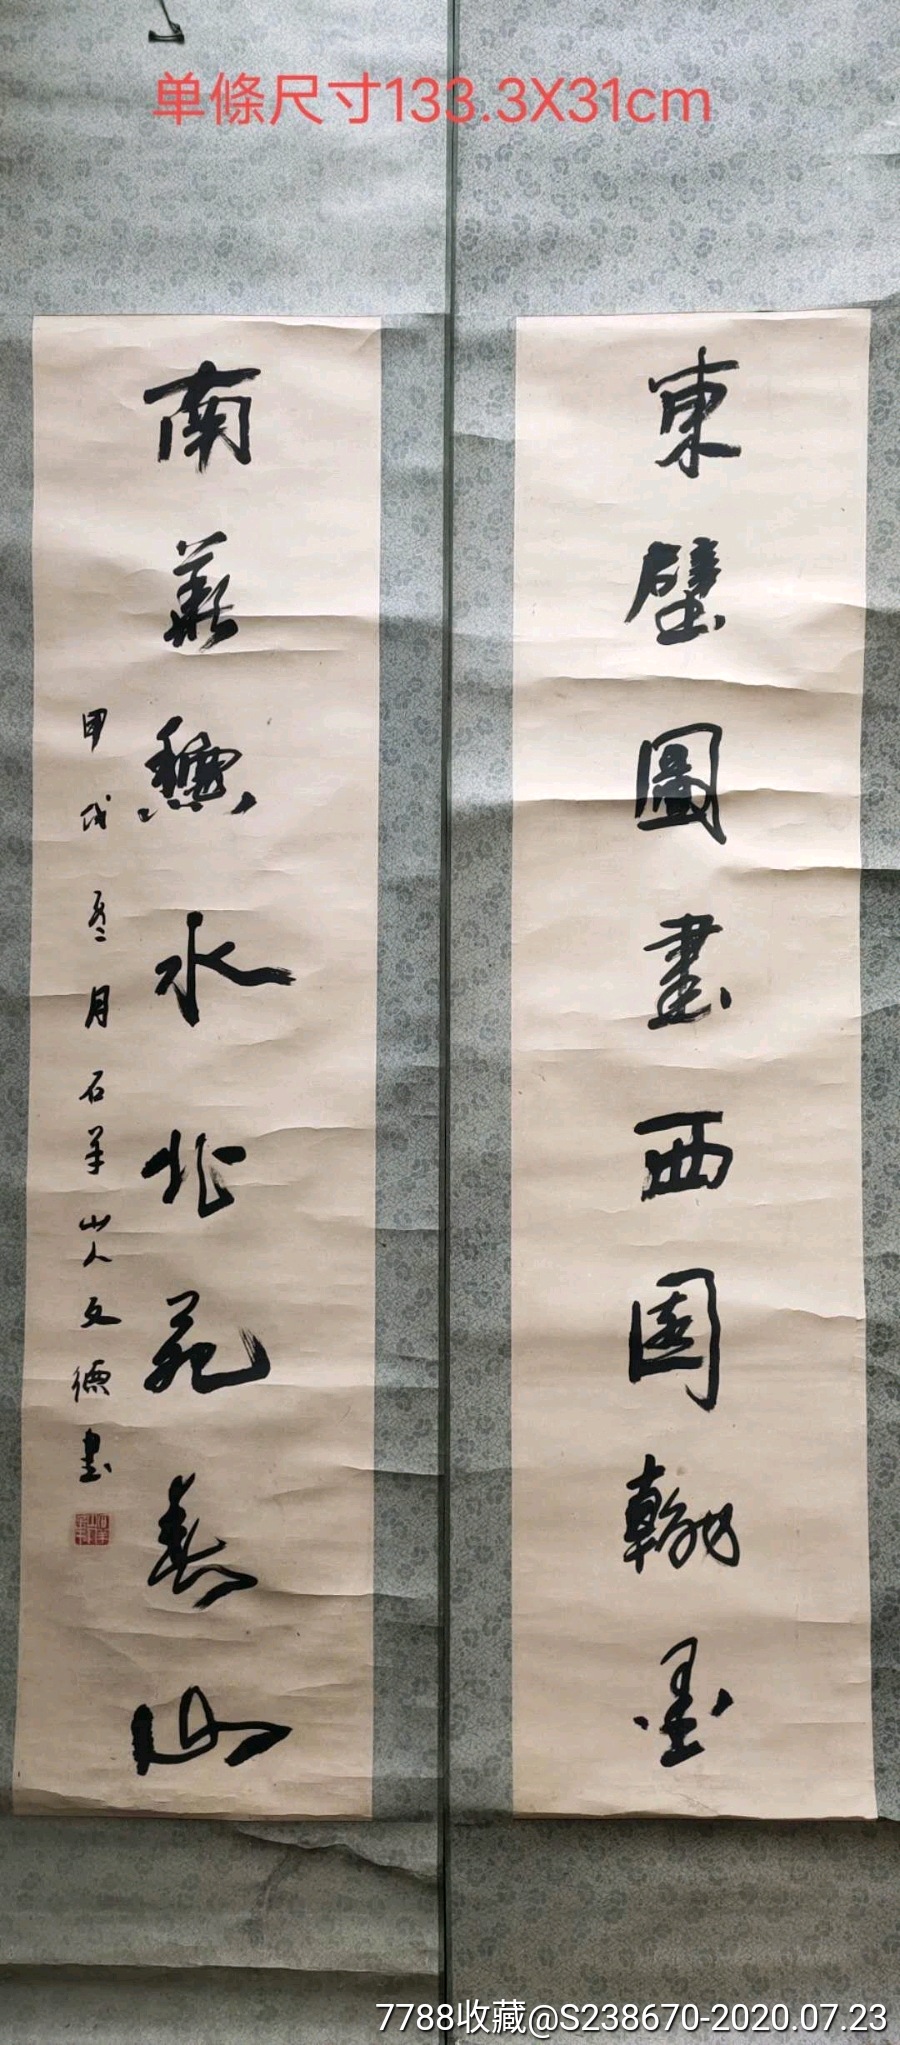 单條尺寸133.3X31cm
東壁圖書西園翰墨
南華秋水北苑春山
甲戌冬月石羊山人文德書
7788收藏@S238670-2020.07.23